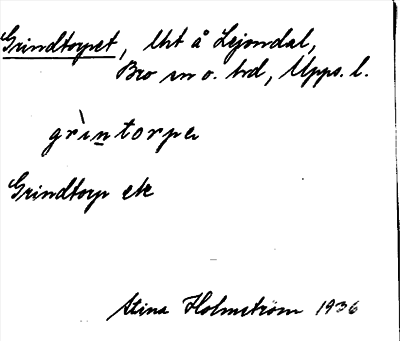 Grindtorpet, lht å Lejondal,
Bro sn o. hd, Upps. l.
grìntorpe
Grindtorp ek
Stina Holmström 1936